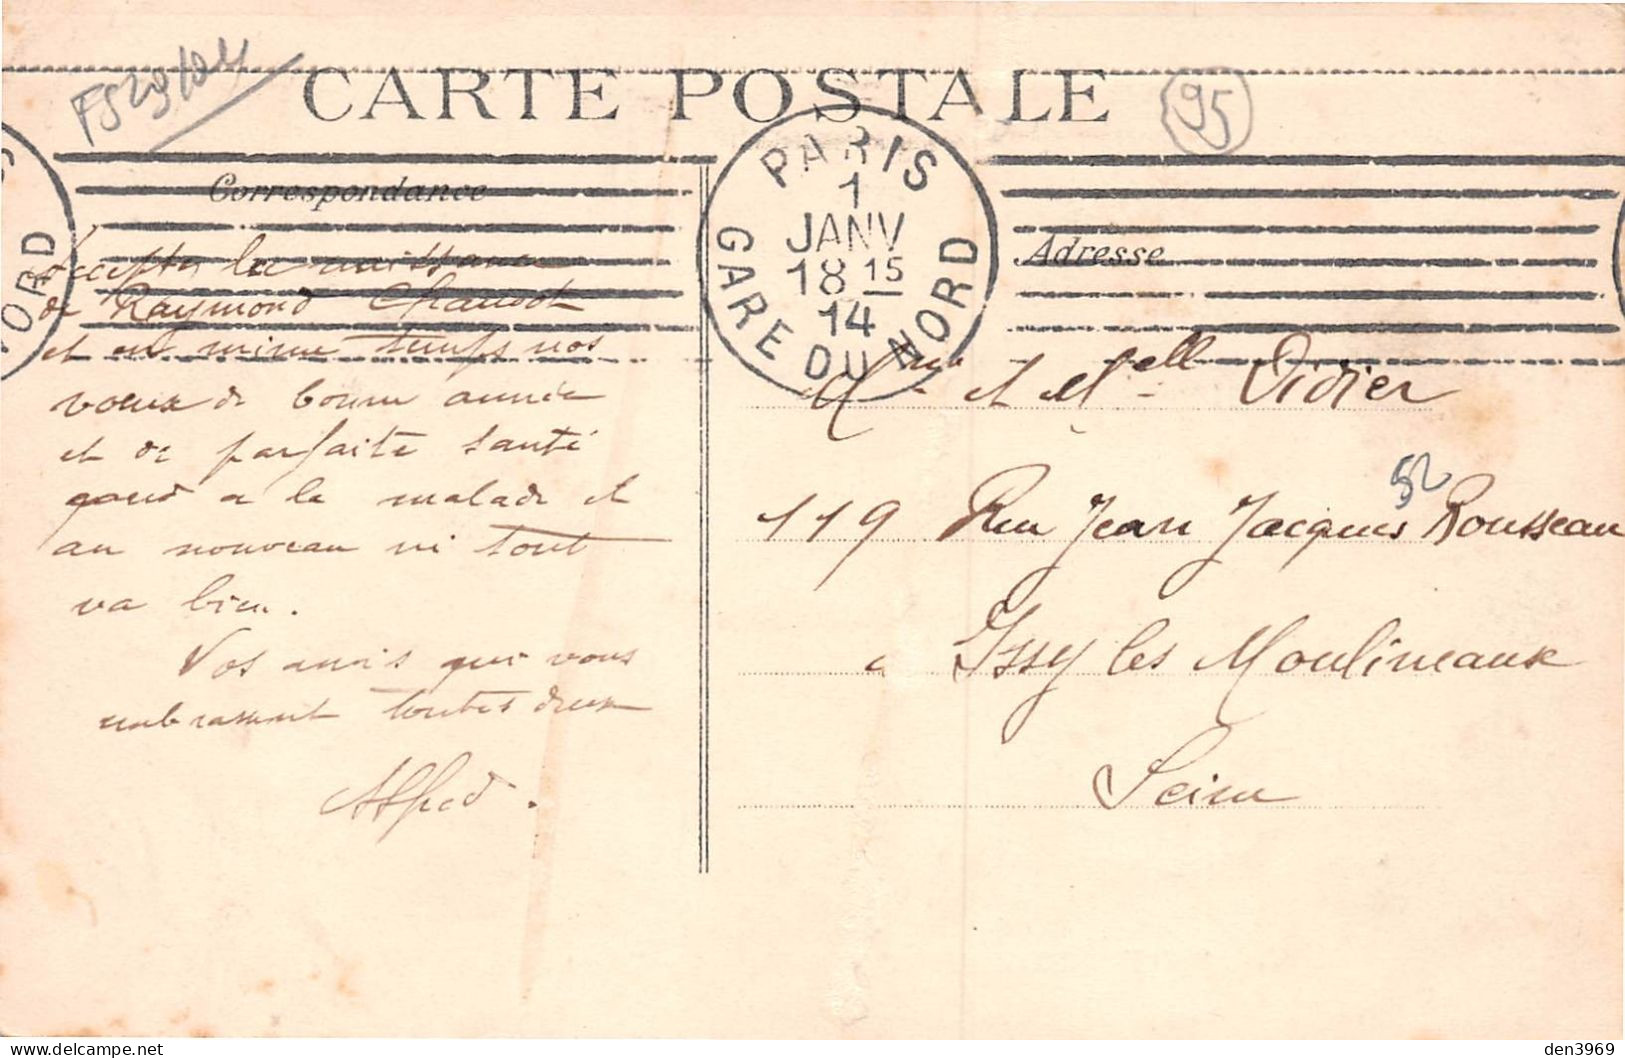 CARTE POSTALE
95
Correspondance
Adresse
PARIS
1
JANV
18 15
14
GARE DU NORD
NORD
la naissance
de Raymond
et en même temps nos
voeux de bonne année
et de parfaite santé
quand a la malade et
au nouveau né tout
va bien.
Vos amis qui vous
embrassent toutes deux
Alfred.
Mme et Melle Didier
52
119 Rue Jean Jacques Rousseau
a Issy les Moulineaux
Seine
den3969